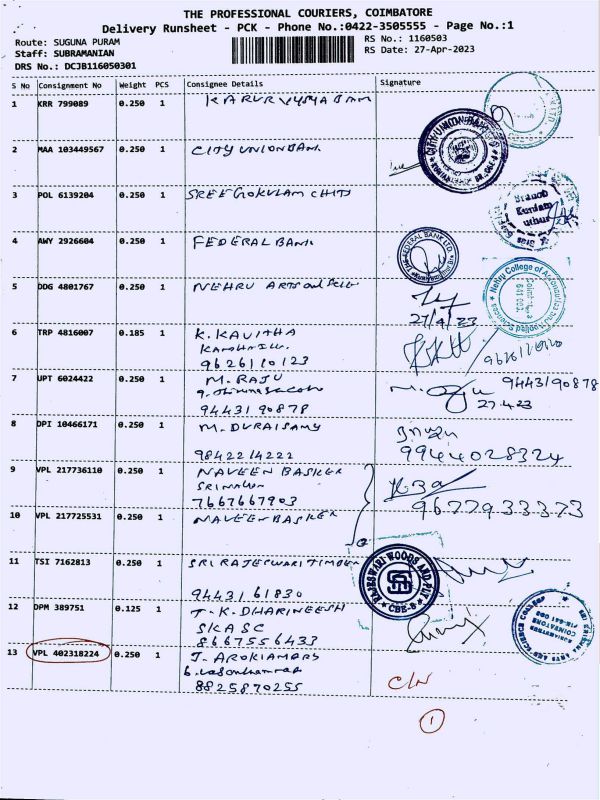 THE PROFESSIONAL COURIERS, COIMBATORE
Delivery Runsheet - PCK - Phone No.:0422-3505555 - Page No.:1
Route: SUGUNA PURAM RS No.: 1160503
Staff: SUBRAMANIAN RS Date: 27-Apr-2023
DRS No.: DCJB116050301
S No Consignment No Weight PCS Consignee Details Signature
1 KRR 799089 0.250 1 KARUR VYSYA BANK
2 MAA 103449567 0.250 1 CITY UNION BANK
CITY UNION BANK
3 POL 6139204 0.250 1 SREE GOKULAM CHITS
Branch
4 AWY 2926604 0.250 1 FEDERAL BANK
THE FEDERAL BANK LTD
5 DDG 4801767 0.250 1 NEHRU ARTS and
Nehru College of Aeronautics and Applied Sciences
27/4/23
6 TRP 4816007 0.185 1 K. KAVITHA
9626110123
7 UPT 6024422 0.250 1 M. RAJU 9443190878
27.4.23
9443190878
8 DPI 10466171 0.250 1 M. DURAISAMY
9842214222 9944028324
9 VPL 217736110 0.250 1 NAVEEN BASKER
7667667903 9677933373
10 VPL 217725531 0.250 1 NAVEEN BASKER
11 TSI 7162813 0.250 1 SRI RAJESWARI TIMBER
RAJESWARI WOODS AND PLY
CBE-8
9443161830
12 DPM 389751 0.125 1 T.K. DHARINEESH
SKASC
8667556433
13 VPL 402318224 0.250 1 J. AROKIAMARS
8825870255
C/N
1